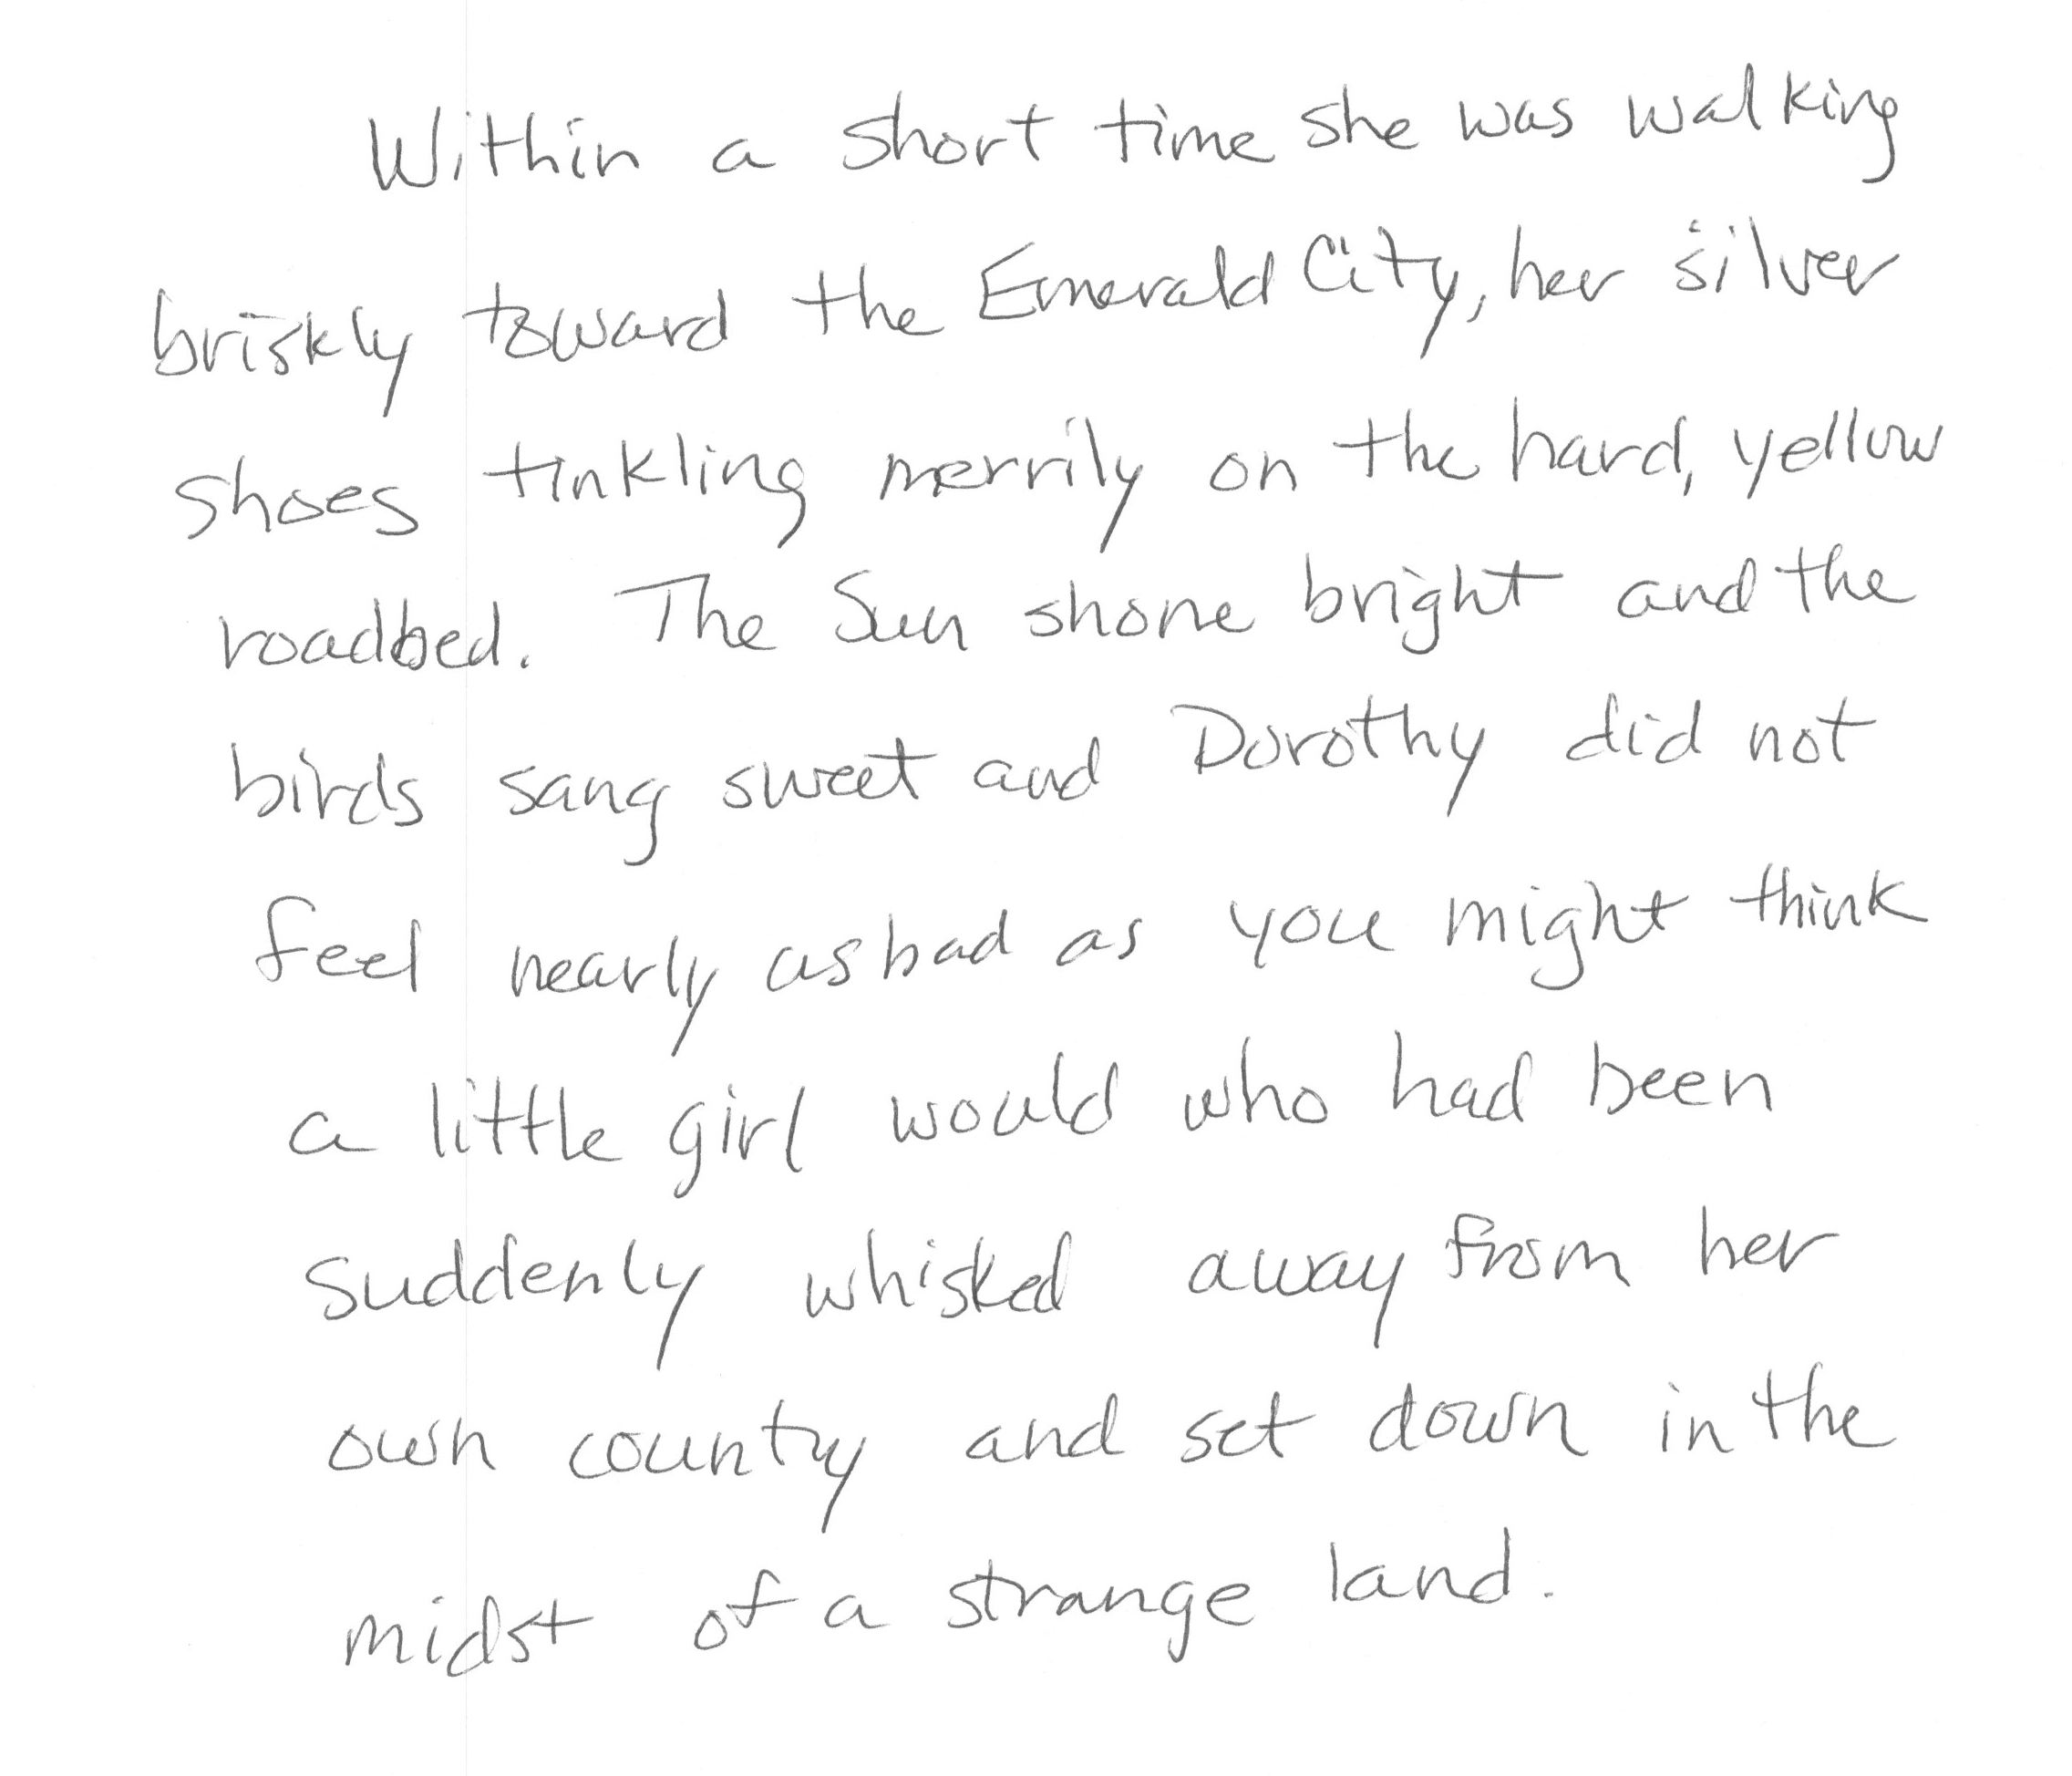 Within a short time she was walking
briskly toward the Emerald City, her silver
shoes tinkling merrily on the hard, yellow
roadbed. The Sun shone bright and the
birds sang sweet and Dorothy did not
feel nearly as bad as you might think
a little girl would who had been
suddenly whisked away from her
own county and set down in the
midst of a strange land.